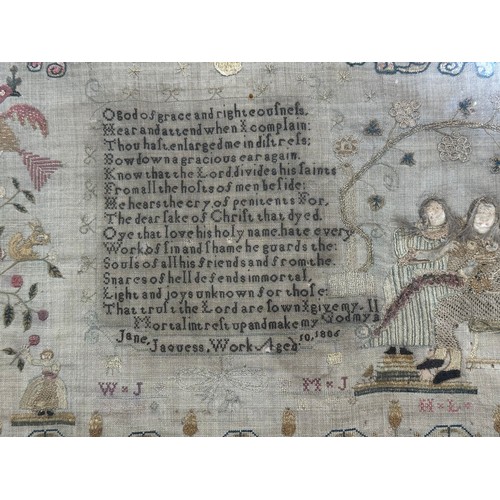 O God of grace and righteousness,
Hear and attend when I complain:
Thou hast enlarged me in distress;
Bow down a gracious ear again.
Know that the Lord divides his saints
From all the hosts of men beside:
He hears the cry of penitents For,
The dear sake of Christ that dyed.
O ye that love his holy name, hate every
Work of sin and shame he guards the:
Souls of all his friends and from the.
Snares of hell defends immortal,
Light and joys unknown for those:
That trust the Lord are sown I give my
Mortal intrest up and make my God my
Jane, Jaquess, Work Aged 10, 1806
W × J
M × J
H × L ×